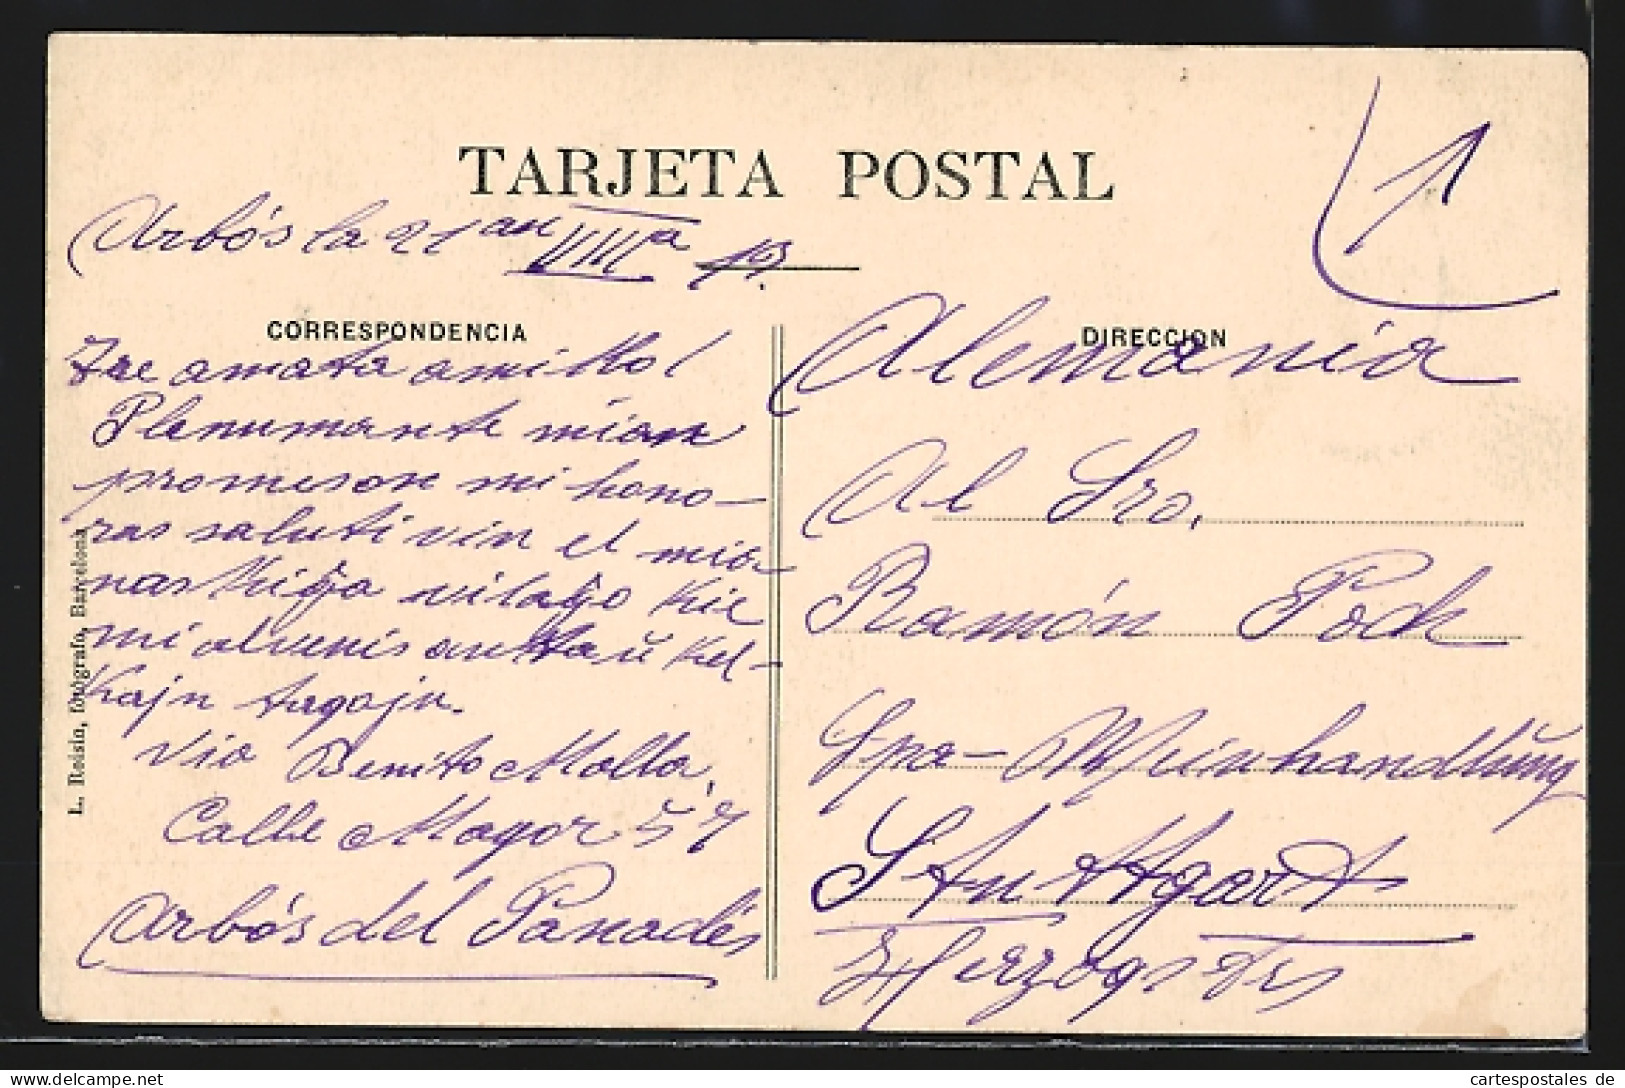 TARJETA POSTAL
Arbós la 21an VIIIa 13.
CORRESPONDENCIA
Tre amata amiko!
Plenumante mian
promeson mi hono-
ras saluti vin el mia
naskiĝa vilaĝo kie
mi alvenis antaŭ kel-
kajn tagojn.
Via Benito Mallá,
Calle Mayor 57
Arbós del Panadés
L. Roisin, fotógrafo, Barcelona
DIRECCION
Alemania
1
Al Sro.
Ramón Poch
Spa-Weinhandlŭng
Stuttgart
cartespostales de